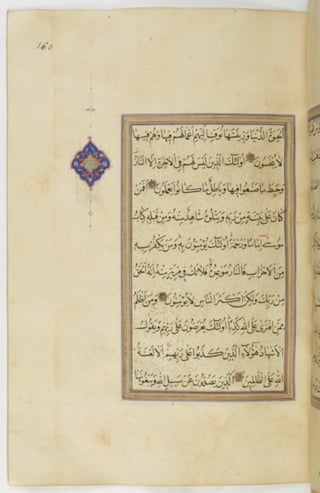 160
الْحَيوةَ الدُّنْيَا وَزِينَتَهَا نُوَفِّ اِلَيْهِمْ اَعْمَالَهُمْ فِيهَا وَهُمْ فِيهَا
لَا يُبْخَسُونَ اُولٰئِكَ الَّذِينَ لَيْسَ لَهُمْ فِي الْاٰخِرَةِ اِلَّا النَّارُ
وَحَبِطَ مَا صَنَعُوا فِيهَا وَبَاطِلٌ مَا كَانُوا يَعْمَلُونَ اَفَمَنْ
كَانَ عَلٰى بَيِّنَةٍ مِنْ رَبِّهِ وَيَتْلُوهُ شَاهِدٌ مِنْهُ وَمِنْ قَبْلِهِ كِتَابُ
مُوسٰى اِمَامًا وَرَحْمَةً اُولٰئِكَ يُؤْمِنُونَ بِهِ وَمَنْ يَكْفُرْ بِهِ
مِنَ الْاَحْزَابِ فَالنَّارُ مَوْعِدُهُ فَلَا تَكُ فِي مِرْيَةٍ مِنْهُ اِنَّهُ الْحَقُّ
مِنْ رَبِّكَ وَلٰكِنَّ اَكْثَرَ النَّاسِ لَا يُؤْمِنُونَ وَمَنْ اَظْلَمُ
مِمَّنِ افْتَرٰى عَلَى اللهِ كَذِبًا اُولٰئِكَ يُعْرَضُونَ عَلٰى رَبِّهِمْ وَيَقُولُ
الْاَشْهَادُ هٰؤُلَاءِ الَّذِينَ كَذَبُوا عَلٰى رَبِّهِمْ اَلَا لَعْنَةُ
اللهِ عَلَى الظَّالِمِينَ الَّذِينَ يَصُدُّونَ عَنْ سَبِيلِ اللهِ وَيَبْغُونَهَا